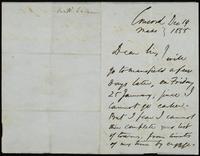 Concord Dec 19
Mass 1855
Dear Sir, I will
go to Mansfield a few
days later, on Friday
25 January, since I
cannot go earlier.
But I fear I cannot
then complete your list
of towns, from limits
of my time by